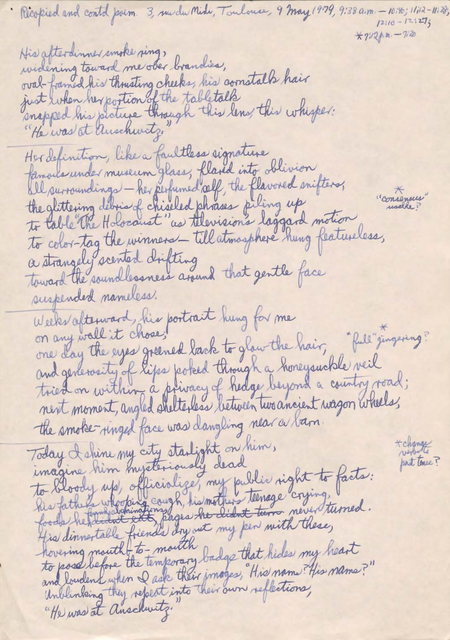 Recopied and contd poem 3, rue du Midi, Toulouse, 9 May 1979, 9:38 a.m. — 10:40; 11:22–11:28;
12:10 – 12:27;
*7:02 p.m. – 7:20
His afterdinner smoke ring,
widening toward me over brandies,
oval-framed his thrusting cheeks, his cornstalk hair
just when her portion of the tabletalk
snapped his picture through this lens, this whisper:
"He was at Auschwitz."
Her definition, like a faultless signature
famous under museum glass, flared into oblivion
all surroundings — her perfumed self, the flavored snifters,
the glittering debris of chiseled phrases piling up
to table "the Holocaust" as television's laggard motion
to color-tag the winners — till atmosphere hung featureless,
a strangely scented drifting
toward the soundlessness around that gentle face
suspended nameless.
*
"consensus"
usable?
Weeks afterward, his portrait hung for me
on any wall it chose;
one day the eyes greened back to glow the hair,
and generosity of lips poked through a honeysuckle veil
tried on within a privacy of hedge beyond a country road;
next moment, angled shelterless between two ancient wagon wheels,
the smoke-ringed face was dangling near a barn.
*
"full" fingering?
Today I shine my city starlight on him,
imagine him mysteriously dead
to bloody up, officialize, my public right to facts:
his father's whooping cough, his mother's teenage crying,
foods he didn't eat, pages he didn't turn never turned.
His dinnertable friends dry out my pen with these,
hovering mouth-to-mouth
to pose before the temporary badge that hides my heart
and louden when I ask their images, "His name? His name?"
Unblinking they repeat into their own reflections,
"He was at Auschwitz."
*change
verbs to
past tense?